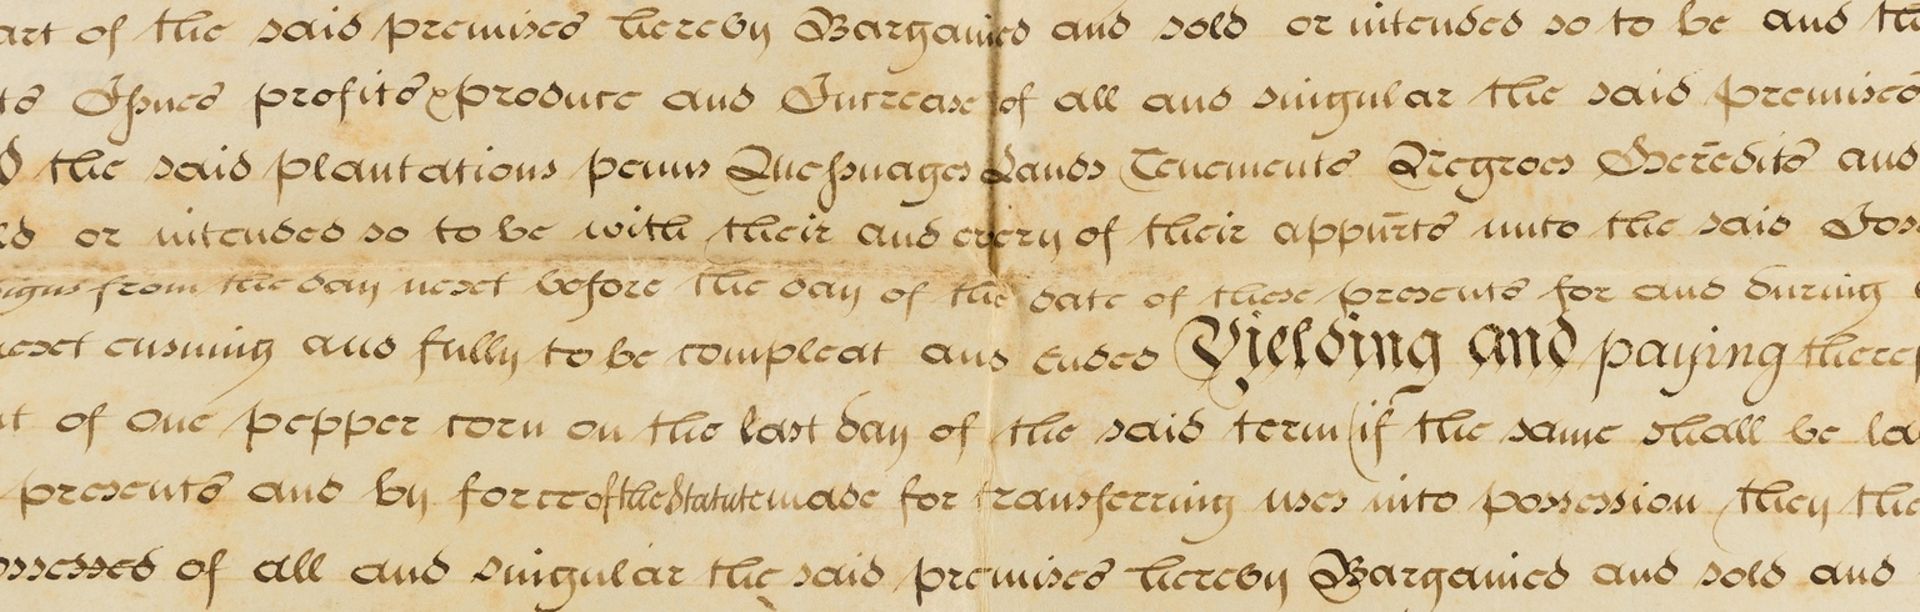 art of the said premises hereby Bargained and sold or intended so to be and th
ts Issues profits & produce and Increase of all and singular the said premises
d the said plantations penns Messuages Lands Tenements Negroes Heredits and
ld or intended so to be with their and every of their appurts unto the said Jos
signs from the day next before the day of the date of these presents for and during
next ensuing and fully to be compleat and ended Yielding and paying theref
nt of one pepper corn on the last day of the said term (if the same shall be la
presents and by force of the Statute made for transferring uses into possession they the
ossessed of all and singular the said premises hereby Bargained and sold and